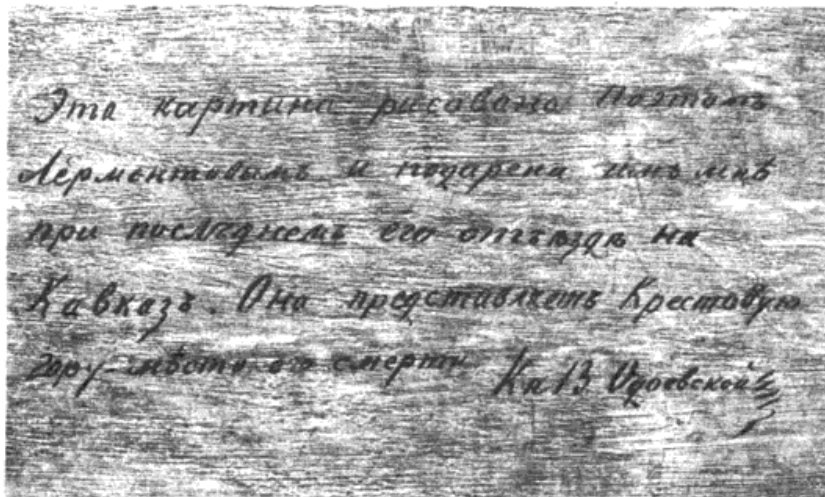 Эта картина рисована поэтомъ
Лермонтовымъ и подарена имъ мнѣ
при послѣднемъ его отъѣздѣ на
Кавказъ. Она представляетъ Крестовую
гору - мѣсто его смерти Кн В Одоевской